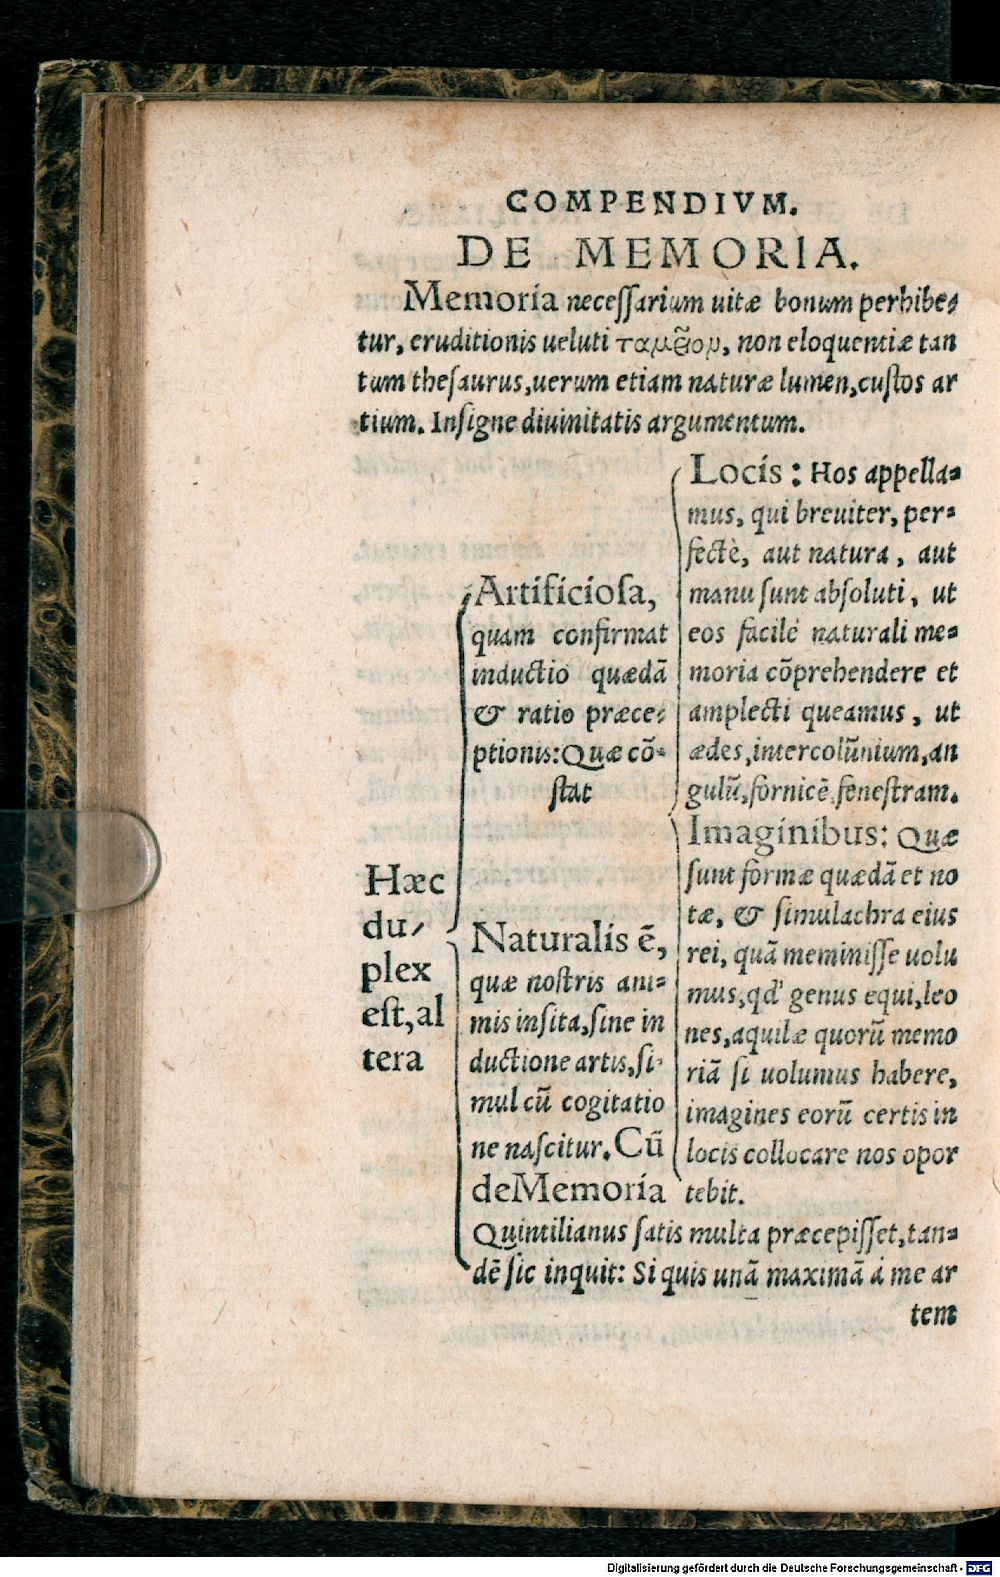 COMPENDIVM.
DE MEMORIA.
Memoria neceſſarium uitæ bonum perhibe⸗
tur, eruditionis ueluti ταμεῖον, non eloquentiæ tan
tum theſaurus, uerum etiam naturæ lumen, cuſtos ar
tium. Inſigne diuinitatis argumentum.
Hæc
du⸗
plex
eſt, al
tera
Artificioſa,
quam confirmat
inductio quædã
& ratio præce⸗
ptionis: Quæ cõ⸗
ſtat
Locis: Hos appella⸗
mus, qui breuiter, per⸗
fectè, aut natura, aut
manu ſunt abſoluti, ut
eos facile naturali me⸗
moria cõprehendere et
amplecti queamus, ut
ædes, intercolũnium, an
gulũ, fornicẽ feneſtram.
Imaginibus: Quæ
ſunt formæ quædã et no
tæ, & ſimulachra eius
rei, quã meminiſſe uolu
mus, qd' genus equi, leo
nes, aquilæ quorũ memo
riã ſi uolumus habere,
imagines eorũ certis in
locis collocare nos opor
tebit.
Naturalis ẽ,
quæ noſtris ani⸗
mis inſita, ſine in
ductione artis, ſi⸗
mul cũ cogitatio
ne naſcitur. Cũ
de Memoria
Quintilianus ſatis multa præcepiſſet, tan⸗
dẽ ſic inquit: Si quis unã maximã à me ar
tem
Digitalisierung gefördert durch die Deutsche Forschungsgemeinschaft - DFG